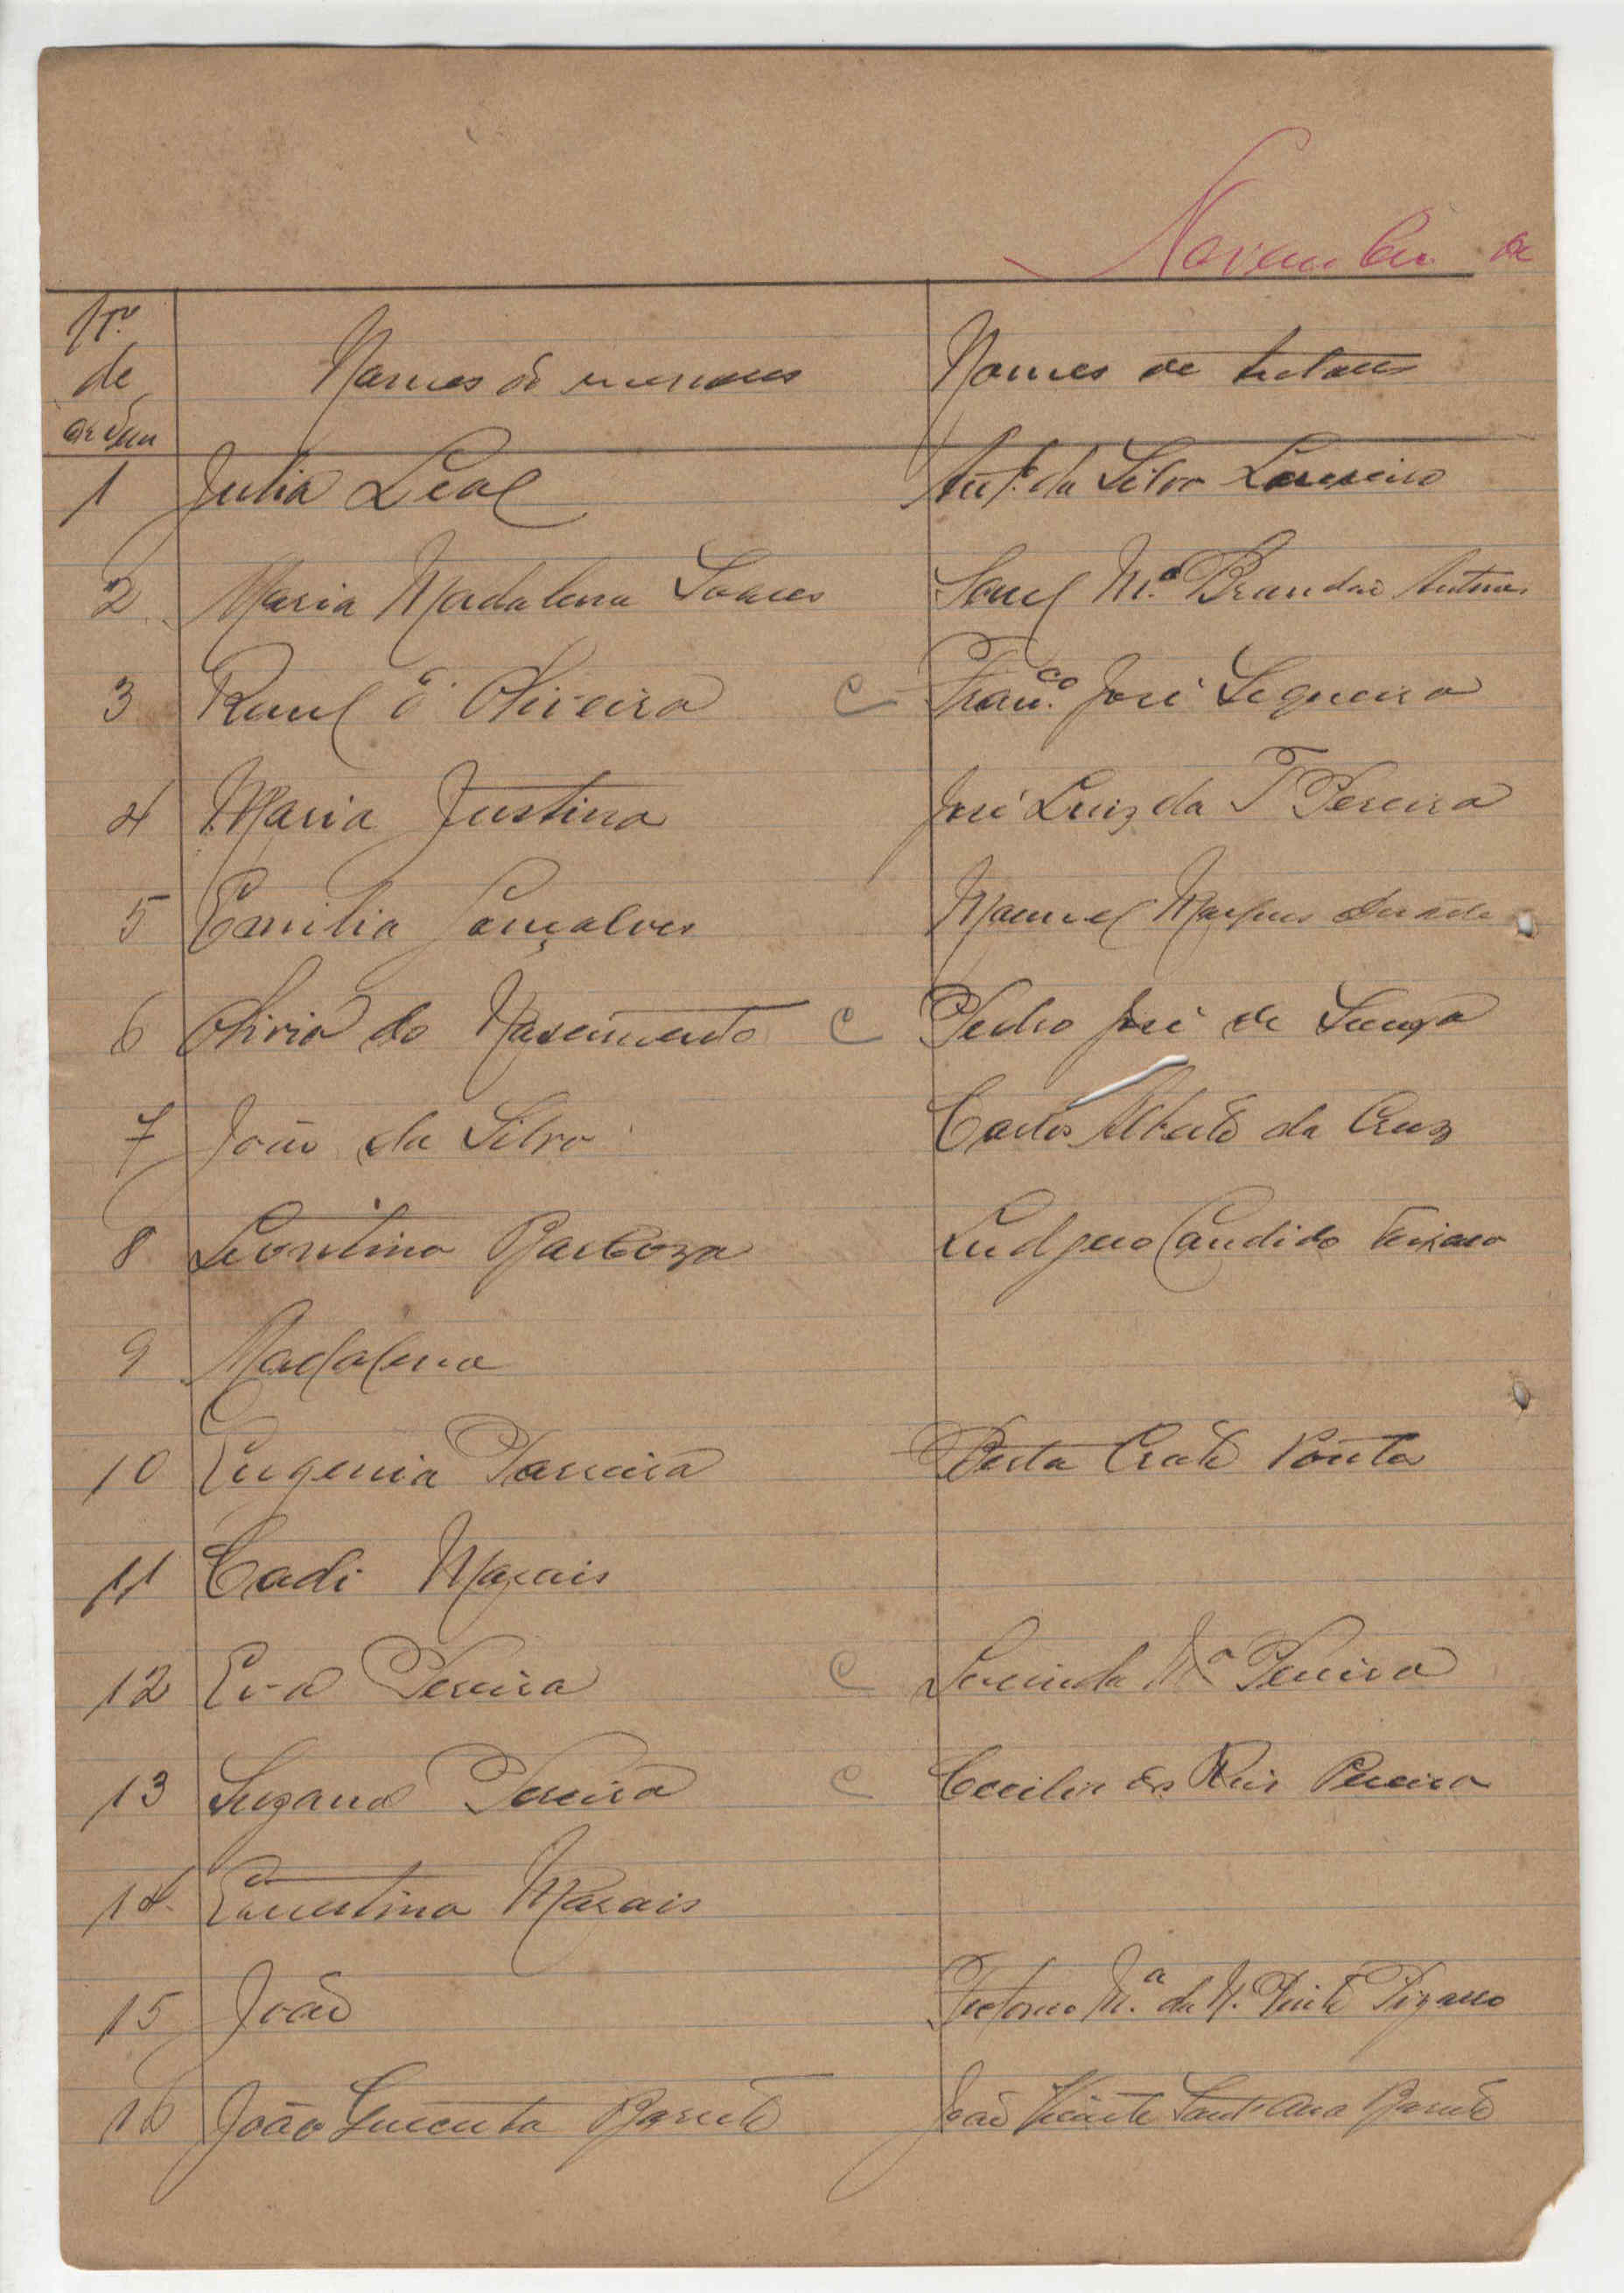 Novembro de
Nº
de
ordem
Nomes de menores
Nomes de tutores
1 Julia Leal Antº da Silva Loureiro
2 Maria Madalena Soares Mª Brandão Antunes
3 Raul d'Oliveira C Franco. José Sequeira
4 Maria Justina José Luiz da T Pereira
5 Emilia Gonçalves Manuel Marques
6 Olivia do Nascimento C Pedro José de Souza
7 João da Silva Carlos Alberto da Cruz
8 Leontina Barboza Ludgero Candido
9 Madalena
10 Eugenia Parreira Berta
11 Cadi Marais
12 Eva Pereira C Mª Pereira
13 Suzana Pereira C Cecilia dos Reis Pereira
14 Ernestina Marais
15 João Mª da Pizarro
16 João Barreto João Vicente Sant'Ana Barreto